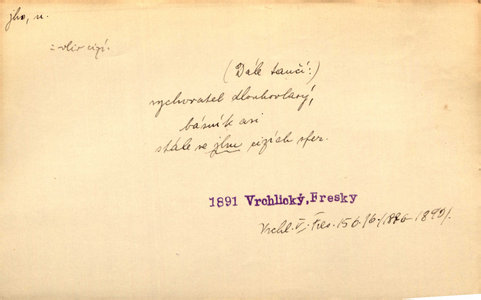 jho, n.
: vliv cizí.
(Dále tančí:)
vychovatel dlouhovlasý,
básník asi
stále ve jhu cizích sfer.
1891 Vrchlický, Fresky
Vrchl. V. Fres. 156. 96. (1886-1890).